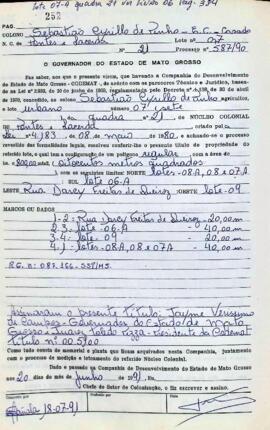 lote 07-A quadra 21 do livro 06 pag. 994
252
COLONO Sebastião Cyrillo de Pinho - E.C. - Casado
Lote nº 07
N. C. de Pontes e Lacerda
Nº 21 Processo nº 587/90
O GOVERNADOR DO ESTADO DE MATO GROSSO
Faz saber, aos que o presente virem, que havendo a Companhia de Desenvolvimento
do Estado de Mato Grosso - CODEMAT, de acôrdo com os pareceres Técnico e Jurídico, basea-
1970, concedido, ao senhor Sebastião Cyrillo de Pinho agricultor,
o lote urbano nº 07 (sete
da quadra 21 do NÚCLEO COLONIAL
de Pontes e Lacerda criado pela
Lei nº 4.183 de 08 de maio de 1980, e achando-se o processo
revestido das formalidades legais, resolveu conferir-lhe o presente título de propriedade
do referido lote, o qual tem a configuração de um polígono regular e a área
de 800,00 m2 (oitocentos metros quadrados
), com os seguintes limites: NORTE lotes - 08A, 08 e 07A
SUL lote 06-A
LESTE Rua Darcy Freitas de Queiroz OESTE lote - 09
MARCOS OU DADOS
1-2: Rua Darcy Freitas de Queiroz - 20,00m
2-3: lote 06-A - 40,00m
3-4: lote 09 - 20,00m
4-1: lotes - 08A, 08 e 07A - 40,00m
Assinaram o presente Titulo: Jayme Verissimo
de Campos - Governador do Estado de Mato
Titulo nº 00.5100
Tudo como consta do memorial e planta que ficam arquivados nesta Companhia, juntamente
com o processo de medição e loteamento do referido Núcleo Colonial.
Dado e passado na Companhia de Desenvolvimento do Estado de Mato Grosso
aos 20 dias do mês de junho de 1991
Chefe do Setor de Colonização, o fiz escrever e assino.
18-07-91